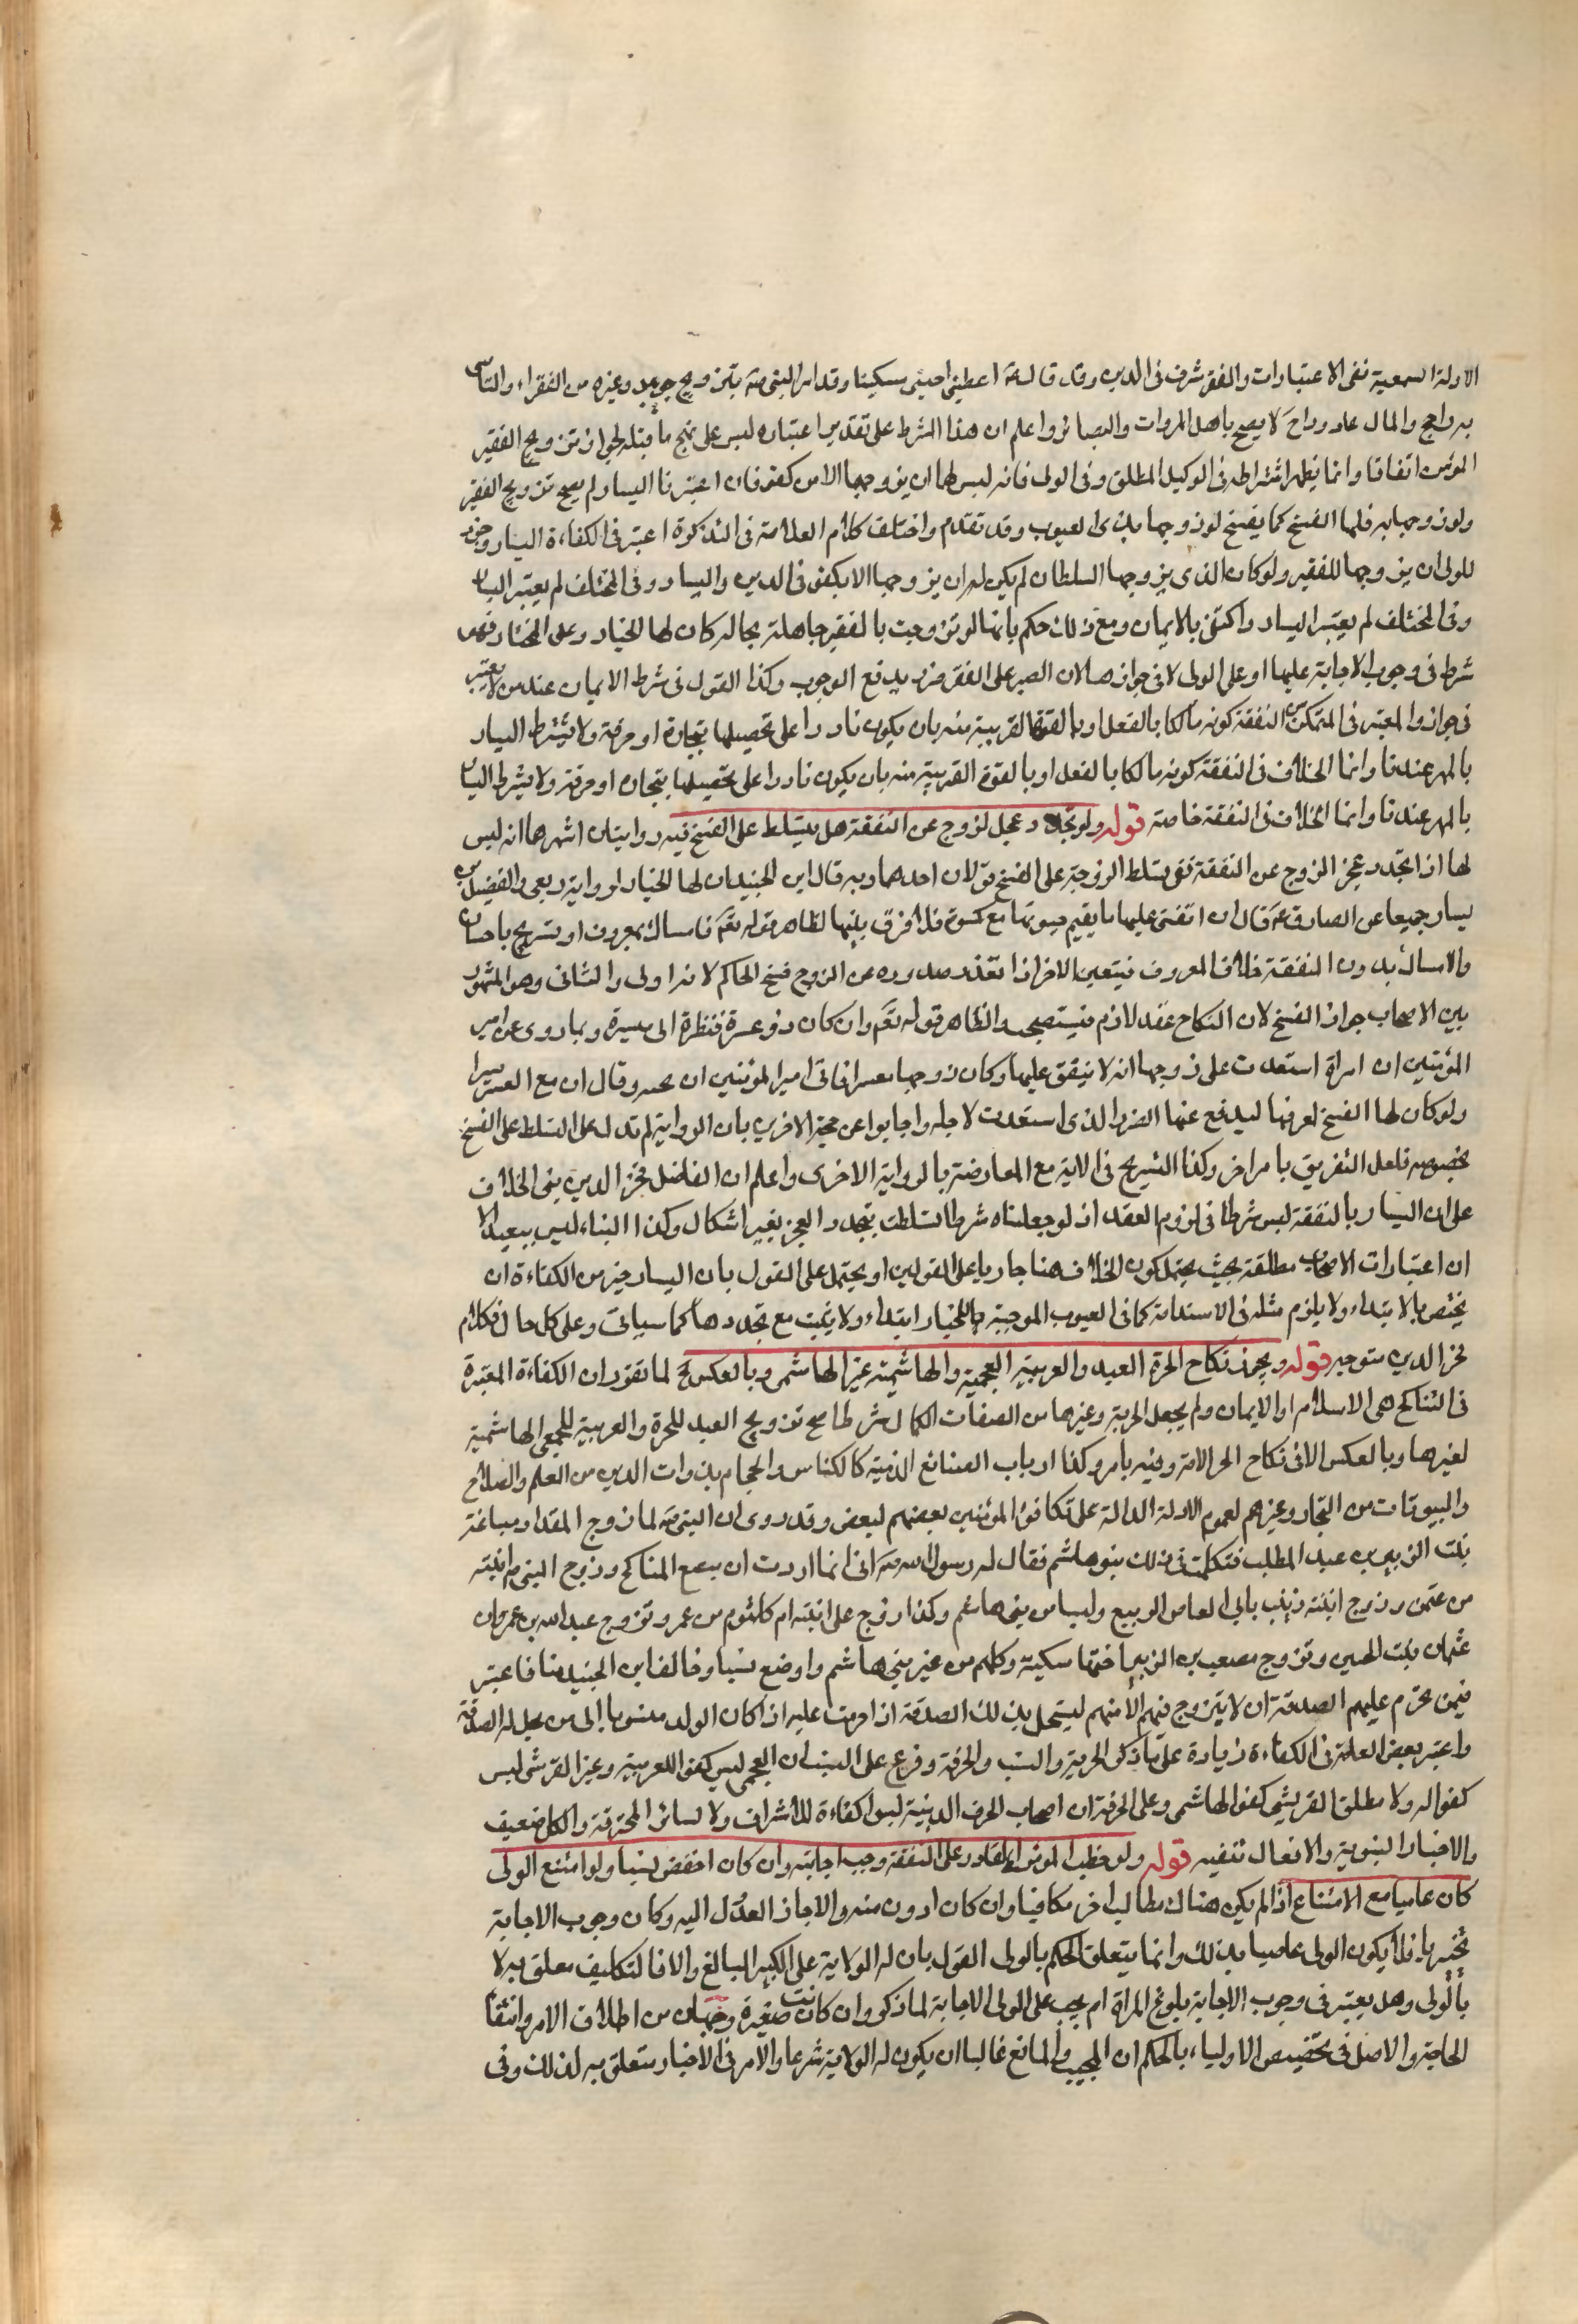 الادلة السمعية نفى الاعتبارات والفقر شرف فى الدين وقد قال اللهم احينى مسكينا وقد امر النبى صه بتزويج جويبر وغيره من الفقراء والتاسى
به راجح والمال غاد ورائح لا يصح باهل المروات والبصائر واعلم ان هذا الشرط على تقدير اعتباره ليس على نهج ما قبله لجواز تزويج الفقير
المؤمن اتفاقا وانما يظهر اشتراطه فى الوكيل المطلق وفى الولى فانه ليس لهما ان يزوجها الا من كفو فان اعتبرنا اليسار لم يصح تزويج الفقير
ولو زوجها به فلها الفسخ كما يفسخ لو زوجها بذى العيوب وقد تقدم واختلف كلام العلامة فى التذكرة اعتبر فى الكفاءة اليسار وجوز
للولى ان يزوجها للفقير ولو كان الذى يزوجها السلطان لم يكن له ان يزوجها الا بكفو فى الدين واليسار وفى المختلف لم يعتبر اليسا
وفى المختلف لم يعتبر اليسار واكتفى بالايمان ومع ذلك حكم بانها لو تزوجت بالفقير جاهلة بحاله كان لها الخيار وعلى المختار فهو
شرط فى وجوب الاجابة عليها او على الولى لا فى جوازها لان الصبر على الفقر ضرر يدفع الوجوب وكذا القول فى شرط الايمان عند من لا يعتبره
فى جوازه والمعتبر فى المتمكن من النفقة كونه مالكا بالفعل او بالقوة القريبة منه بان يكون قادرا على تحصيلها بتجارة او حرفة ولا يشترط اليسار
بالمهر عندنا وانما الخلاف فى النفقة كونه مالكا بالفعل او بالقوة القريبة منه بان يكون قادرا على تحصيلها بتجارة او حرفة ولا يشترط اليسا
بالمهر عندنا وانما الخلاف فى النفقة خاصة قوله ولو تجدد عجز الزوج عن النفقة هل يتسلط على الفسخ فيه روايتان اشهرهما انه ليس
لها اذا تجدد عجز الزوج عن النفقة ففى تسلط الزوجة على الفسخ قولان احدهما وبه قال ابن الجنيد ان لها الخيار لرواية ربعى والفضيل بن
يسار جميعا عن الصادق ع قال ان انفق عليها ما يقيم حيوتها مع كسوة والا فرق بينهما لظاهر قوله تعم فامساك بمعروف او تسريح باحسان
والامساك بدون النفقة خلاف المعروف فيتعين الاخر اذا تعذر صدوره من الزوج فسخ الحاكم لانه اولى والثانى وهو المشهور
بين الاصحاب جواز الفسخ لان النكاح عقد لازم فيستصحب ولظاهر قوله تعم وان كان ذو عسرة فنظرة الى ميسرة وبما روى عن امير
المؤمنين ان امراة استعدت على زوجها انه لا ينفق عليها وكان زوجها معسرا فابى امير المؤمنين ان يحبسه وقال ان مع العسر يسرا
ولو كان لها الفسخ لعرفها ليدفع عنها الضرر الذى استعدت لاجله واجابوا عن حجة الاخرين بان الرواية لم تدل على التسلط على الفسخ
بخصوصه فلعل التفريق بامر اخر وكذا التسريح فى الاية مع المعارضة بالرواية الاخرى واعلم ان الفاضل فخر الدين بنى الخلاف
على ان اليسار بالنفقة ليس شرطا فى لزوم العقد اذ لو جعلناه شرطا لتسلطت بتجدد العجز بغير اشكال وكذا البناء ليس ببعيد الا
ان اعتبارات الاصحاب مطلقة بحيث يحتمل كون الخلاف هنا جاريا على القولين او يحتمل على القول بان اليسار جزء من الكفاءة ان
يختص بالابتداء ولا يلزم مثله فى الاستدامة كما فى العيوب الموجبة للخيار ابتداء ولا يثبت مع تجددها كما سياتى وعلى كل حال فكلام
فخر الدين متوجه قوله ويجوز نكاح الحرة العبد والعربية العجمية والهاشمية غير الهاشمى وبالعكس لما تقرر ان الكفاءة المعتبرة
فى التناكح هى الاسلام او الايمان ولم يجعل الحرية وغيرها من الصفات الكمال شرطا صح تزويج العبد للحرة والعربية للعجمى الهاشمية
لغيرها وبالعكس الا فى نكاح الحر الامة وفيه ما مر وكذا ارباب الصنائع الدنية كالكناس والحجام بذوات الدين من العلم والصلاح
والبيوتات من التجار وغيرهم لعموم الادلة الدالة على تكافؤ المؤمنين بعضهم لبعض وقد روى ان النبى صه لما زوج المقداد ضباعة
بنت الزبير بن عبد المطلب فتكلمت فى ذلك بنو هاشم فقال له رسول الله صه انى انما اردت ان يتضع المناكح وزوج النبى صه ابنته
من عثمن وزوج ابنته زينب بابى العاص الربيع وليسا من بنى هاشم وكذا زوج على ابنته ام كلثوم من عمر وتزوج عبد الله بن عمر وبن
عثمان بنت الحسين وتزوج مصعب بن الزبير اختها سكينة وكلهم من غير بنى هاشم واوضع نسبا وخالف ابن الجنيد هنا فاعتبر
فيمن تحرم عليهم الصدقة ان لا يتزوج فيهم الا منهم ليستحل بذلك الصدقة اذا حرمت عليه اذا كان الولد منسوبا الى من يحل له الصدقة
واعتبر بعض العامة فى الكفاءة زيادة على ما ذكر الحرية والنسب والحرفة وفرع على النسب ان العجمى ليس كفوا للعربية وغير القرشى ليس
كفوا له ولا مطلق القريشى كفوا لهاشمى وعلى الحرفة ان اصحاب الحرف الدنية ليسوا كفاءة للاشراف ولا لسائر المحترفة والكل ضعيف
والاخبار النبوية والافعال تنفيه قوله ولو خطب المؤمن القادر على النفقة وجب اجابته وان كان اخفض نسبا ولو امتنع الولى
كان عاصيا مع الامتناع اذا لم يكن هناك مطالب اخر مكافيا وان كان ادون منه والا جاز العدول اليه وكان وجوب الاجابة
تخييريا فلا يكون الولى عاصيا بذلك وانما يتعلق الحكم بالولى القول بان له الولاية على الكبير البالغ والا فالتكليف متعلق بها لا
بالولى وهل يعتبر فى وجوب الاجابة بلوغ المراة ام يجب على الولى الاجابة لما ذكر وان كانت صغيرة وجهان من اطلاق الامر وانتفا
الحاجة والاصل فى تخصيص الاولياء بالحكم ان المجيب والمانع غالبا ان يكون له الولاية شرعا والامر فى الاخبار متعلق به لذلك وفى